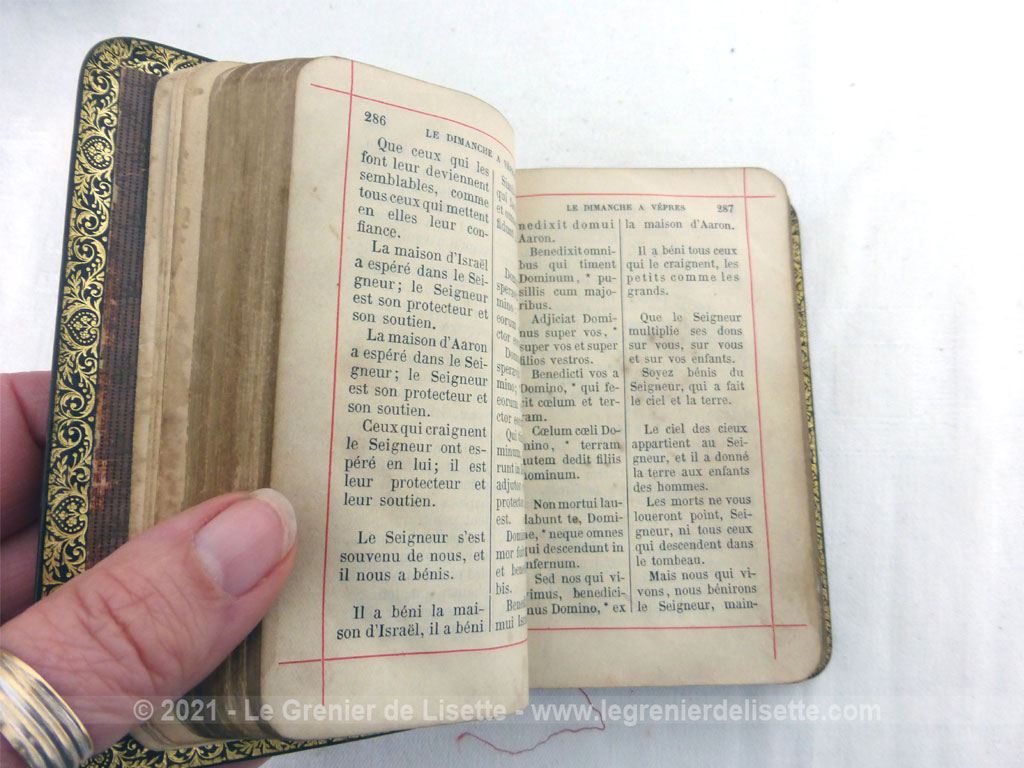 286
LE DIMANCHE A
Que ceux qui les
font leur deviennent
semblables, comme
tous ceux qui mettent
en elles leur con-
fiance.
La maison d'Israël
a espéré dans le Sei-
gneur; le Seigneur
est son protecteur et
son soutien.
La maison d'Aaron
a espéré dans le Sei-
gneur; le Seigneur
est son protecteur et
son soutien.
Ceux qui craignent
le Seigneur ont es-
péré en lui; il est
leur protecteur et
leur soutien.
Le Seigneur s'est
souvenu de nous, et
il nous a bénis.
Il a béni la mai-
son d'Israël, il a béni
LE DIMANCHE A VÊPRES 287
domui
Aaron.
Benedixit omni-
bus qui timent
Dominum, * pu-
sillis cum majo-
ribus.
Adjiciat Domi-
nus super vos, *
super vos et super
filios vestros.
Benedicti vos a
Domino, * qui fe-
cit cœlum et ter-
ram.
Cœlum cœli Do-
mino, * terram
autem dedit filiis
hominum.
Non mortui lau-
dabunt te, Domi-
ne, * neque omnes
qui descendunt in
infernum.
Sed nos qui vi-
vimus, benedici-
mus Domino, * ex
la maison d'Aaron.
Il a béni tous ceux
qui le craignent, les
petits comme les
grands.
Que le Seigneur
multiplie ses dons
sur vous, sur vous
et sur vos enfants.
Soyez bénis du
Seigneur, qui a fait
le ciel et la terre.
Le ciel des cieux
appartient au Sei-
gneur, et il a donné
la terre aux enfants
des hommes.
Les morts ne vous
loueront point, Sei-
gneur, ni tous ceux
qui descendent dans
le tombeau.
Mais nous qui vi-
vons, nous bénirons
le Seigneur, main-
© 2021 - Le Grenier de Lisette - www.legrenierdelisette.com